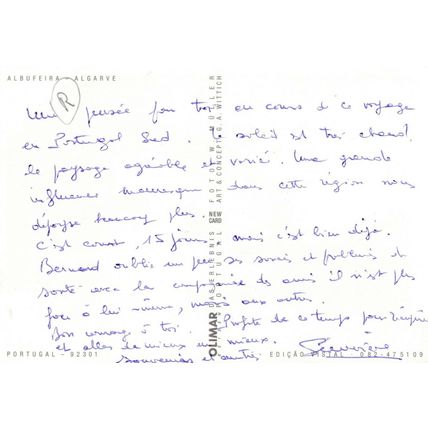 ALBUFEIRA - ALGARVE
R
Une pensée pour toi en cours de ce voyage
en Portugal Sud. soleil est très chaud,
le paysage agréable et varié. Une grande
influence mauresque dans cette région nous
beaucoup plus
c'est court, 15 jours mais c'est bien déjà.
Bernard oublie un peu ses soucis et problèmes de
santé avec la compagnie des amis il n'est plus
face à lui même, mais aux autres.
Bon courage à toi. Profite de ce temps pour
et aller de mieux en mieux.
souvenirs et amitiés
FOTO W. MÜLLER
ART & CONCEPT G. A. WITTICH
NEW CARD
OLIMAR
PORTUGAL
PORTUGAL - 92301
EDIÇÃO VISTAL - 082-475109